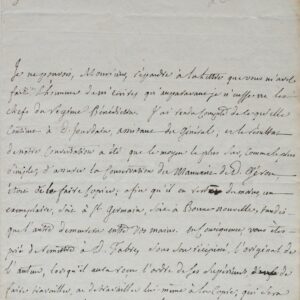 Je ne pouvois, Monsieur, répondre à la lettre que vous m'avés
fait l'honneur de m'écrire qu'auparavant je n'eusse vu les
Chefs du Régime Bénédictin. J'ai rendu compte de ce qu'elle
contient à D. Jourdain, assistant du Général; et le résultat
de notre Conversation a été que le moyen le plus sûr, comme le plus
simple, d'assurer la Conservation du Manuscrit de D. Gérou
étoit de le faire Copier; afin qu'il en restât du moins un
exemplaire, soit à St Germain, soit à Bonne nouvelle, tandis
que l'autre demeurera entre vos mains. En conséquence vous êtes
prié de remettre à D. Fabre, sous son récépissé, l'original de
l'auteur, lorsqu'il aura reçu l'ordre de ses Supérieurs de
faire travailler, ou de travailler lui-même à la Copie, qui sera